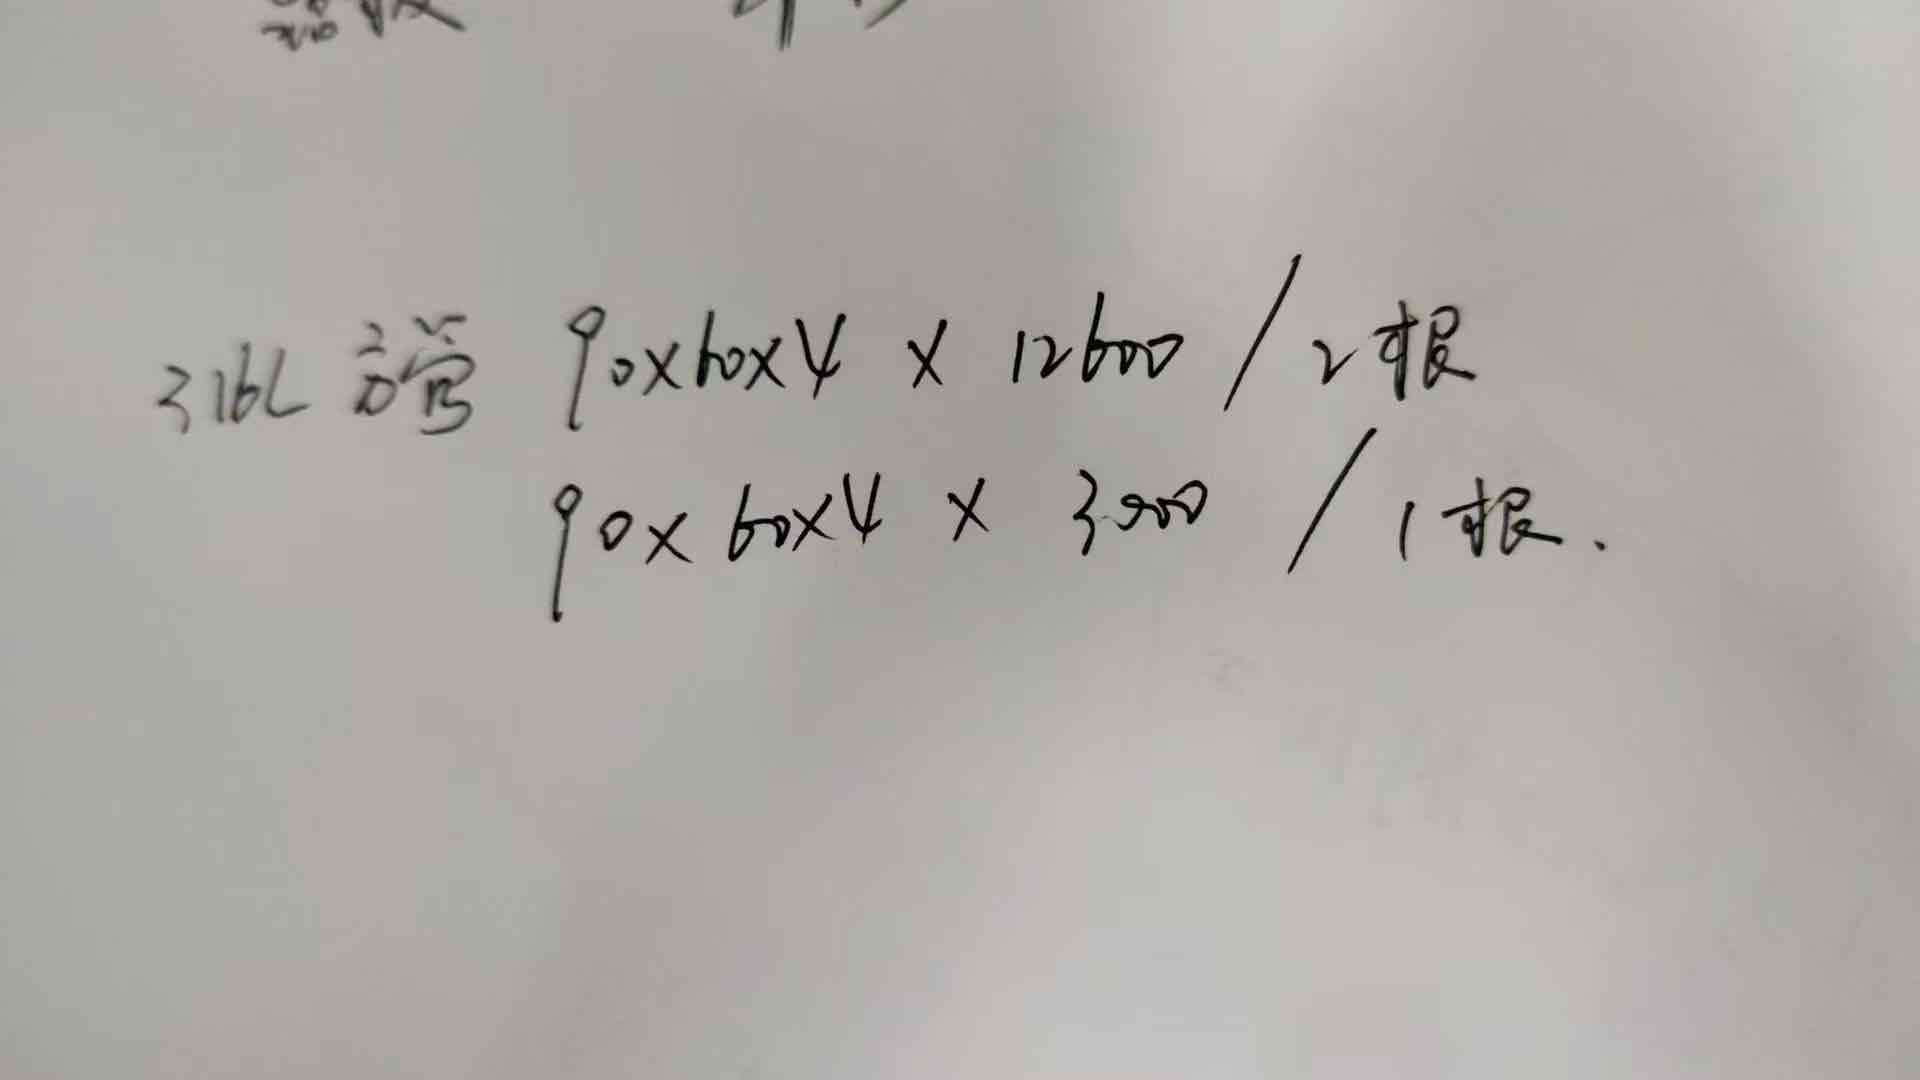 316L 方管 90×60×4 × 12600 / 2根
90×60×4 × 3000 / 1根.